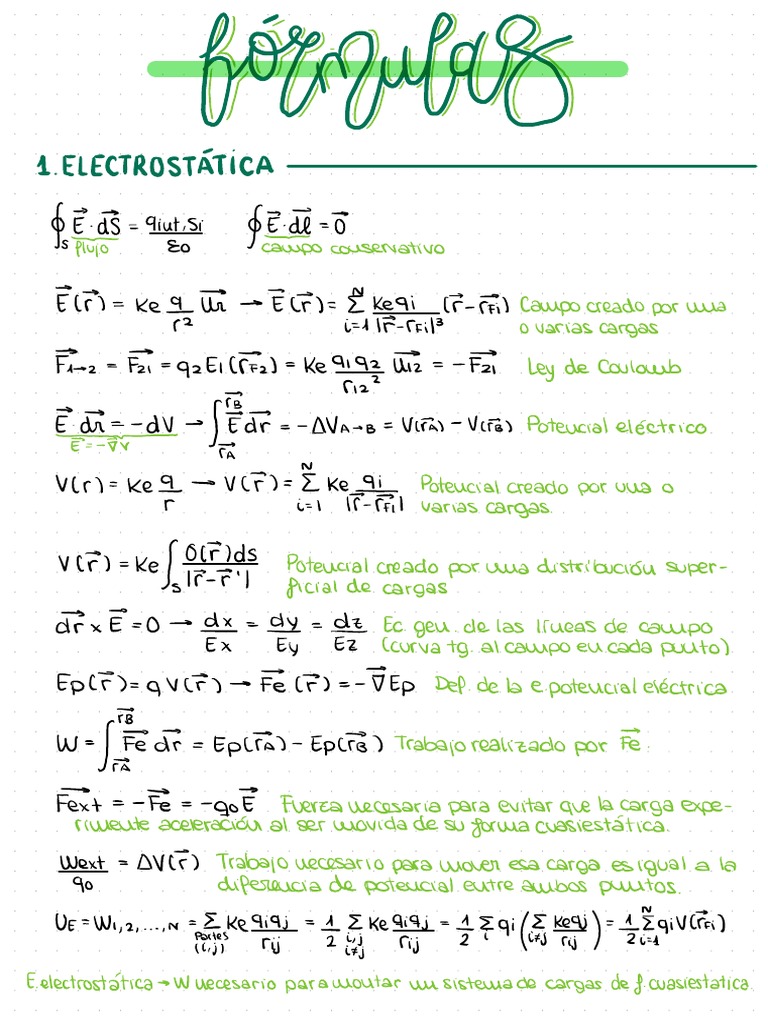 fórmulas
1. ELECTROSTÁTICA
∮s E⃗·dS⃗ = qint,Si/ε0   ∮ E⃗·dl⃗ = 0⃗
flujo   campo conservativo
E⃗(r⃗) = Ke q/r² u⃗r → E⃗(r⃗) = Σ_{i=1}^{N} Ke qi/|r⃗-r⃗Fi|³ (r⃗-r⃗Fi) Campo creado por una
o varias cargas
F⃗1→2 = F⃗21 = q2E1(r⃗F2) = Ke q1q2/r12² u⃗12 = -F⃗21 Ley de Coulomb
E⃗·dr⃗ = -dV → ∫_{r⃗A}^{r⃗B} E⃗ dr⃗ = -ΔVA→B = V(r⃗A) - V(r⃗B) Potencial eléctrico
E⃗ = -∇⃗V
V(r) = Ke q/r → V(r⃗) = Σ_{i=1}^{N} Ke qi/|r⃗-r⃗Fi| Potencial creado por una o
varias cargas.
V(r⃗) = Ke ∫s O(r⃗)ds/|r⃗-r⃗'| Potencial creado por una distribución super-
ficial de cargas
dr⃗ x E⃗ = 0 → dx/Ex = dy/Ey = dz/Ez Ec. gen. de las líneas de campo
(curva tg. al campo en cada punto)
Ep(r⃗) = qV(r⃗) → F⃗e(r⃗) = -∇⃗Ep Def. de la e. potencial eléctrica
W = ∫_{r⃗A}^{r⃗B} F⃗e dr⃗ = Ep(r⃗A) - Ep(r⃗B) Trabajo realizado por F⃗e.
F⃗ext = -F⃗e = -q0E⃗ Fuerza necesaria para evitar que la carga expe-
rimente aceleración al ser movida de su forma cuasiestática.
Wext/q0 = ΔV(r⃗) Trabajo necesario para mover esa carga es igual a la
diferencia de potencial entre ambos puntos.
UE = W1,2,...,N = Σ_{Partes (i,j)} Ke qiqj/rij = 1/2 Σ_{i,j i≠j} Ke qiqj/rij = 1/2 Σ_{i} qi (Σ_{i≠j} Keqj/rij) = 1/2 Σ_{i=1}^{N} qiV(r⃗Fi)
E. electrostática → W necesario para montar un sistema de cargas de f. cuasiestatica